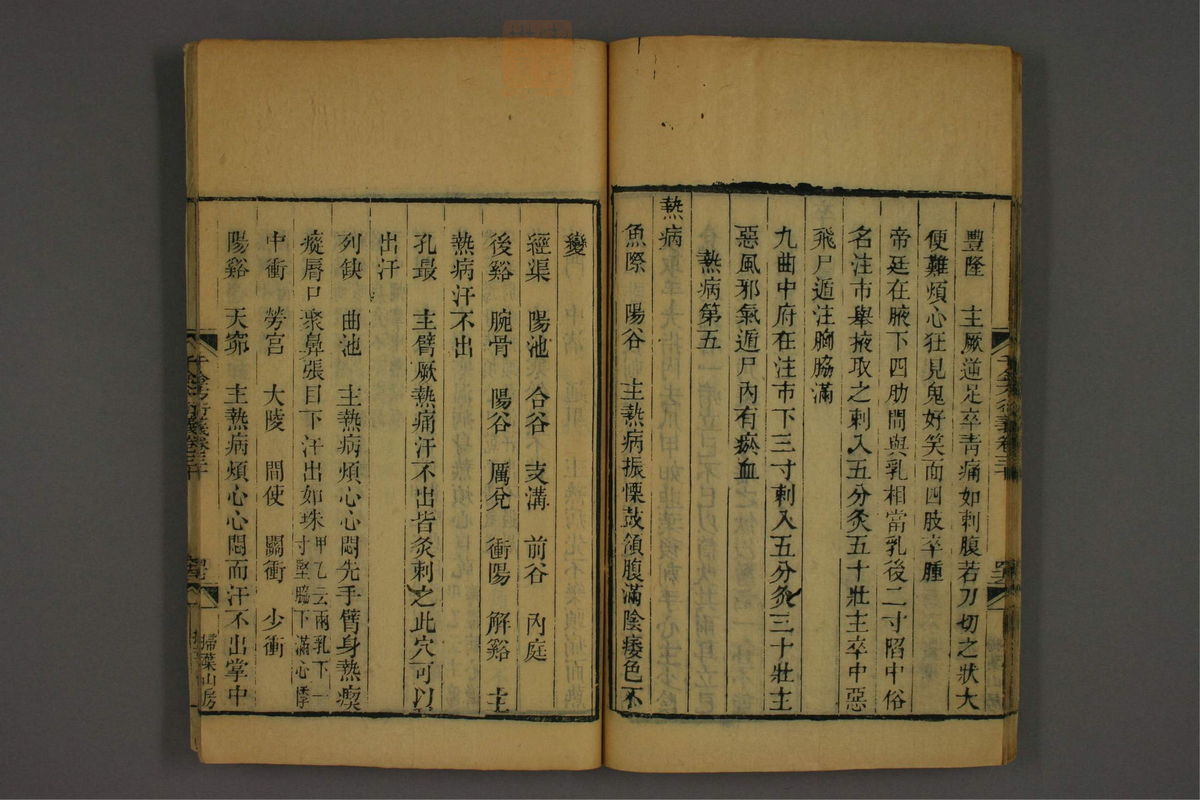 豐隆　主厥逆足卒青痛如刺腹若刀切之狀大
便難煩心狂見鬼好笑面四肢卒腫
帝廷在腋下四肋間與乳相當乳後二寸陷中俗
名注市舉掖取之刺入五分灸五十壯主卒中惡
飛尸遁注胸脇滿
九曲中府在注市下三寸刺入五分灸三十壯主
惡風邪氣遁尸內有瘀血
熱病第五
熱病
魚際　陽谷　主熱病振慄鼓頷腹滿陰痿色不
變
經渠　陽池　合谷　支溝　前谷　內庭
後谿　腕骨　陽谷　厲兌　衝陽　解谿　主
熱病汗不出
孔最　主臂厥熱痛汗不出皆灸刺之此穴可以
出汗
列缺　曲池　主熱病煩心心悶先手臂身熱瘈
瘲脣口聚鼻張目下汗出如珠甲乙云兩乳下一
寸堅脇下滿心悸
中衝　勞宮　大陵　間使　關衝　少衝
陽谿　天窌　主熱病煩心心悶而汗不出掌中
千金方衍義卷三十
掃葉山房